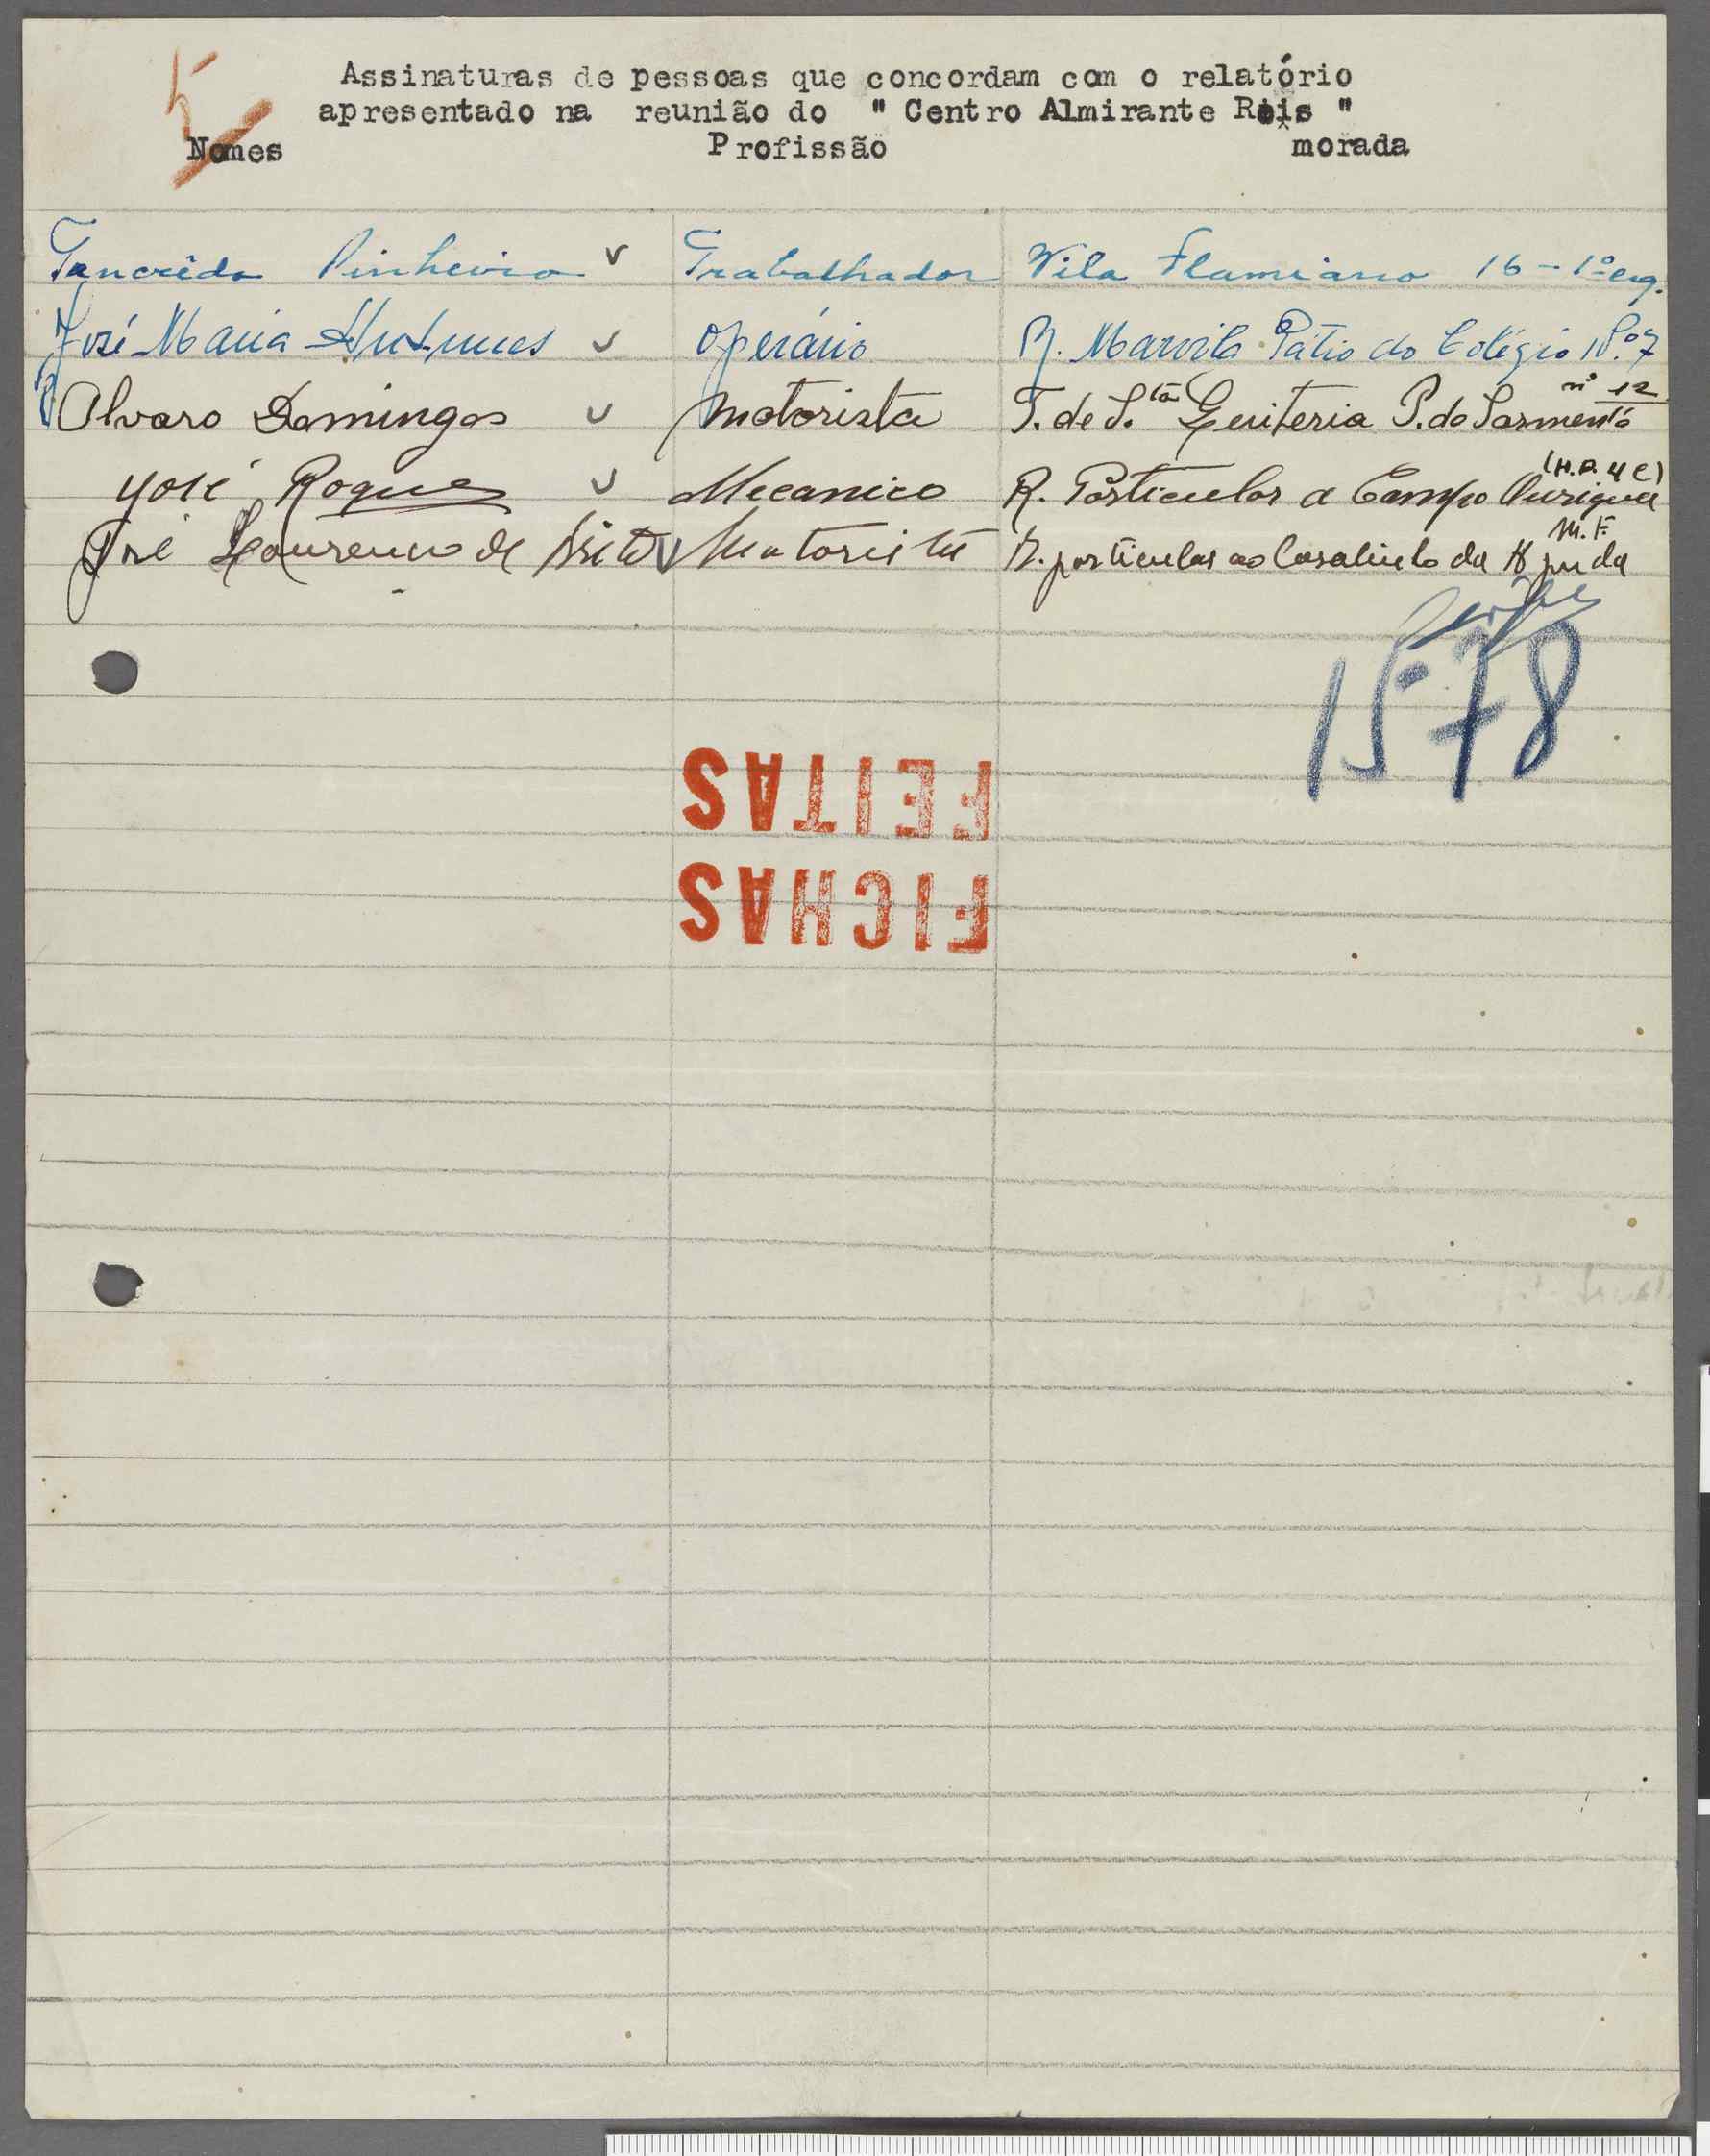 5
Assinaturas de pessoas que concordam com o relatório
apresentado na reunião do " Centro Almirante Reis "
Nomes Profissão morada
Tancrêdo Pinheiro v Trabalhador Vila Flamiano 16-1º esq.
José Maria Antunes v Operário R. Marvila Pátio do Colégio 7
Alvaro Domingos v Motorista T. de S.ta Quiteria P. do Sarmento nº 12
José Roque v Mecanico R. Particular a Campo Ourique
José Lourenço de Brito v Motorista R. particular ao Casalinho da Ajuda M.F.
1578
FICHAS
FEITAS